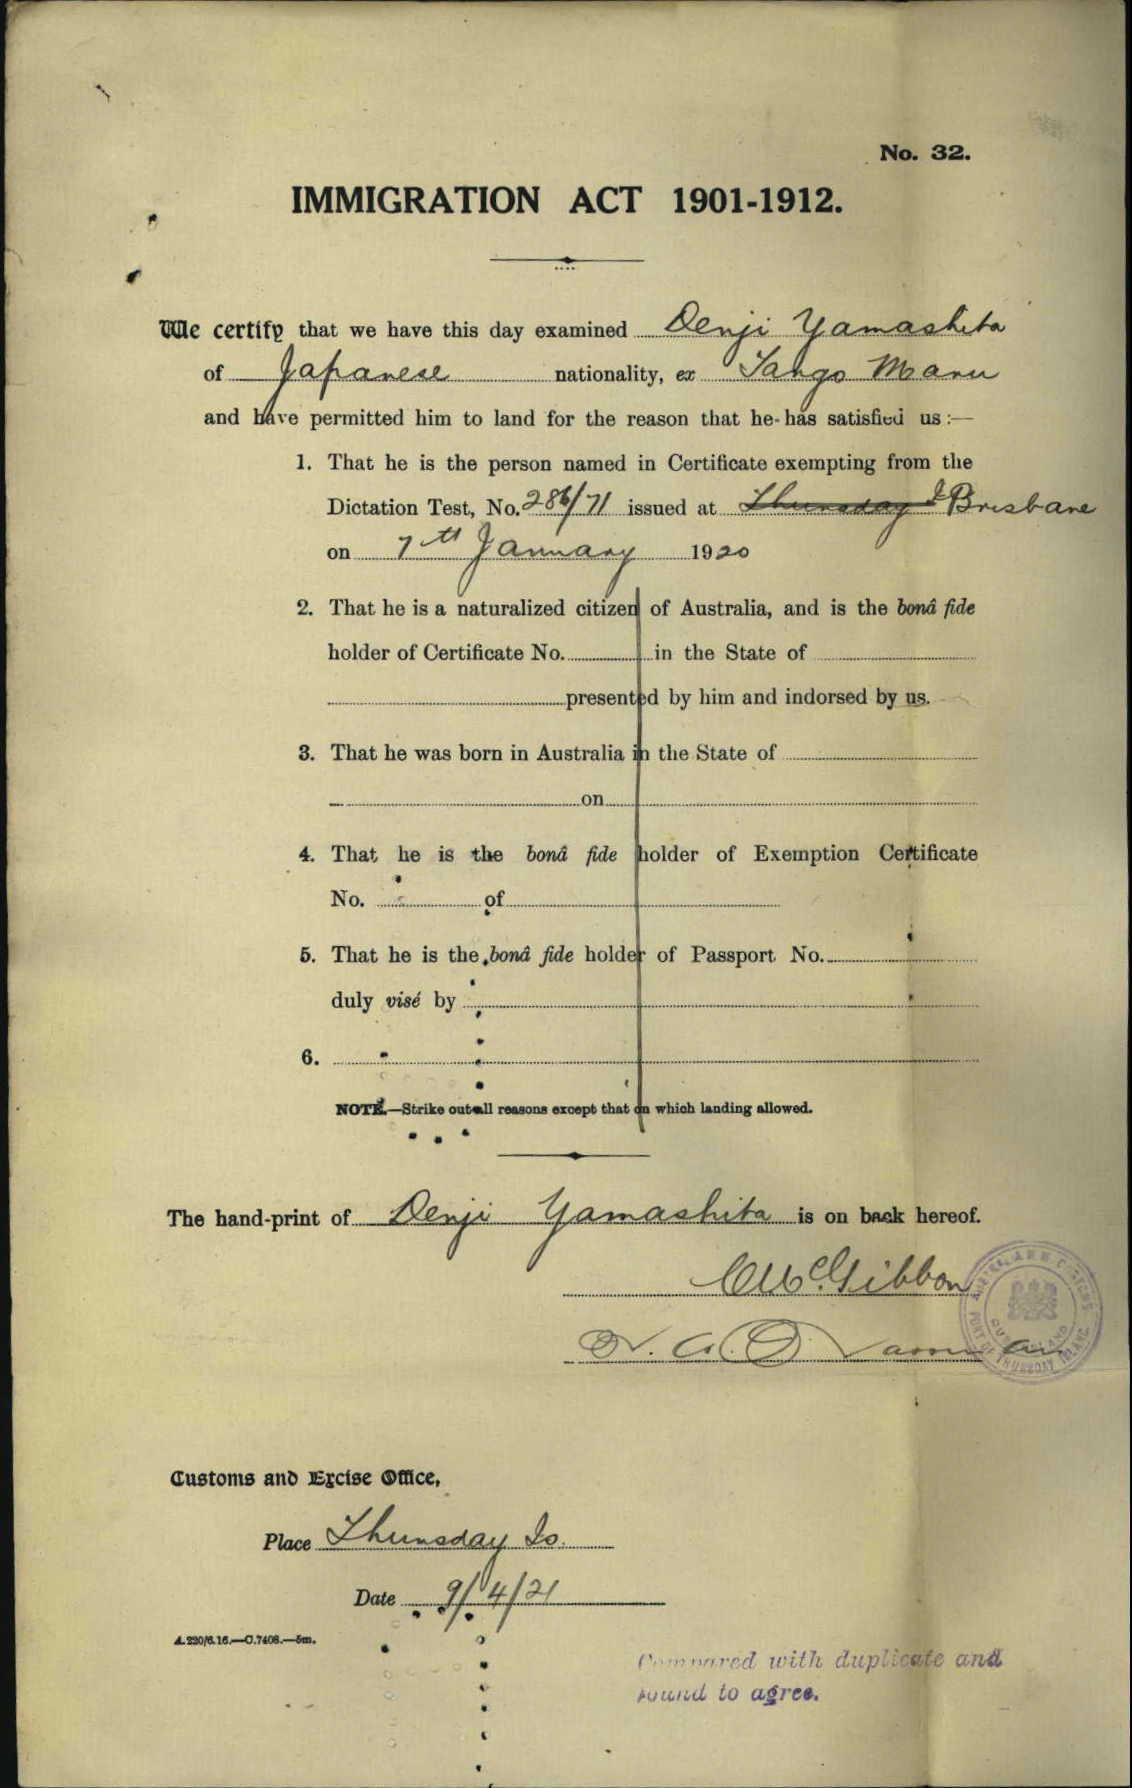 No. 32.
IMMIGRATION ACT 1901-1912.
We certify that we have this day examined Denji Yamashita
of Japanese nationality, ex Tango Maru
and have permitted him to land for the reason that he has satisfied us :—
1. That he is the person named in Certificate exempting from the
Dictation Test, No. 286/71 issued at Thursday I Brisbane
on 7th January 1920
2. That he is a naturalized citizen of Australia, and is the bonâ fide
holder of Certificate No. in the State of
presented by him and indorsed by us.
3. That he was born in Australia in the State of
on
4. That he is the bonâ fide holder of Exemption Certificate
No. of
5. That he is the bonâ fide holder of Passport No.
duly visé by
6.
NOTE.—Strike out all reasons except that on which landing allowed.
The hand-print of Denji Yamashita is on back hereof.
McGibbon
AUSTRALIAN CUSTOMS
QUEENSLAND
PORT OF THURSDAY ISLAND
Customs and Excise Office,
Place Thursday Is.
Date 9/4/21
A.220/6.16.—C.7408.—5m.
Compared with duplicate and
found to agree.